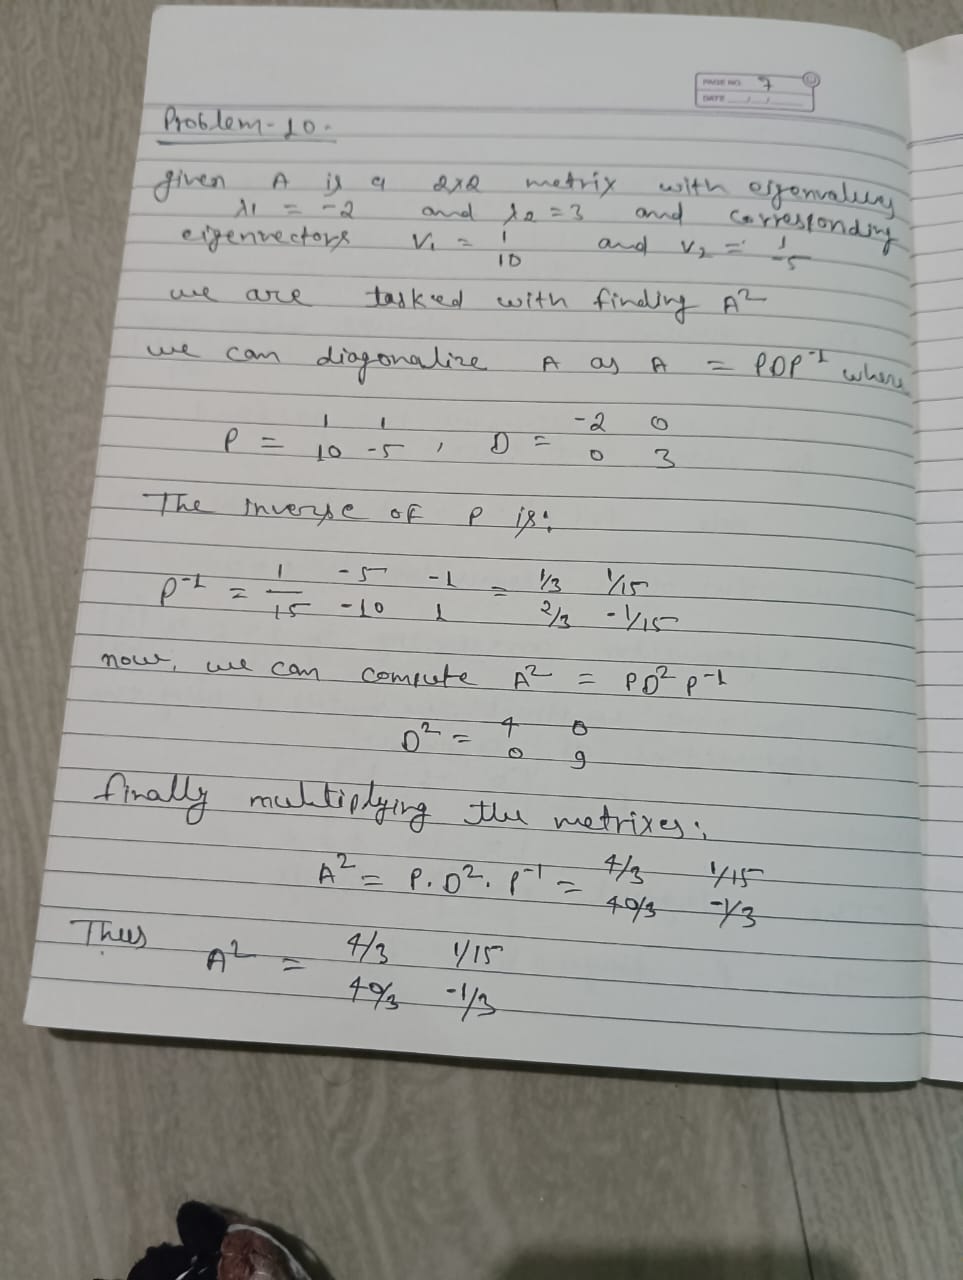 PAGE NO. 7
DATE / /
Problem-10.
given A is a 2x2 metrix with eigenvalues
λ1 = -2 and λ2 = 3 and corresponding
eigenvectors V1 = 1 and V2 = 1
10 -5
we are tasked with finding A²
we can diagonalize A as A = PDP⁻¹ where
P = 1 1 , D = -2 0
10 -5 0 3
The inverse of P is:
P⁻¹ = 1/15 -5 -1 = 1/3 1/15
-10 1 2/3 -1/15
now, we can compute A² = PD²P⁻¹
D² = 4 0
0 9
finally multiplying the metrixes:
A² = P.D².P⁻¹ = 4/3 1/15
40/3 -1/3
Thus A² = 4/3 1/15
40/3 -1/3